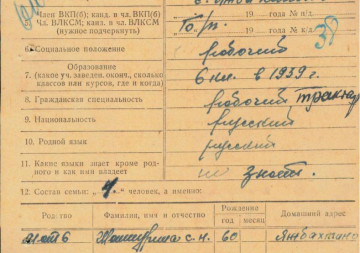 Член ВКП(б); канд. в чл. ВКП(б)
Член ВЛКСМ; канд. в чл. ВЛКСМ
(нужное подчеркнуть)
19 года № п/д
б/п.
19 года № к/д
6. Социальное положение рабочий
Образование
7. (какие уч. заведен. оконч., сколько классов или курсов, где и когда) 6 кл. в 1939 г.
8. Гражданская специальность рабочий
9. Национальность русский
10. Родной язык русский
11. Какие языки знает кроме родного и как ими владеет не знает.
12. Состав семьи: „4“ человек, а именно:
Родство Фамилия, имя и отчество Рождение Домашний адрес
год месяц
С. И. 60